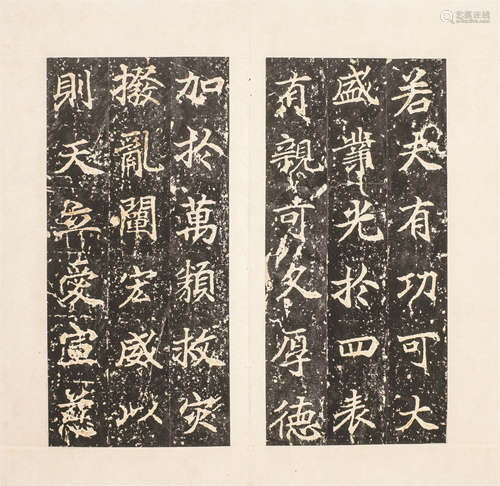 若夫有功可大
盛業光於四表
有親可久厚德
加於萬類救灾
撥亂闡宏威以
則天立愛宣慈